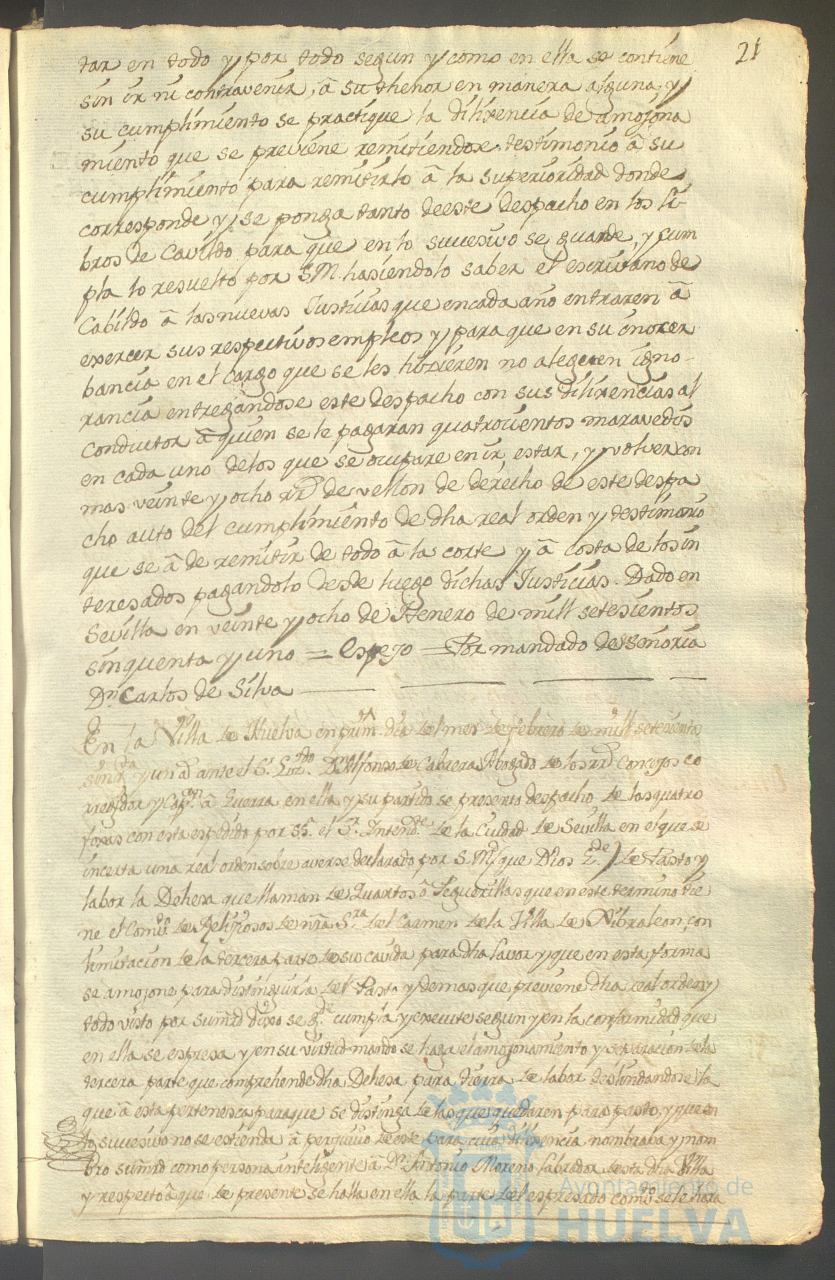 21
tar en todo y por todo segun y como en ella se contiene
sin ir ni contravenir, â su thenor en manera alguna, y
su cumplimiento se practique la dilixencia de amojona
miento que se previene remitiendose testimonio â su
cumplimiento para remitirlo â la superioridad donde
corresponde y se ponga tanto deeste despacho en los li-
bros de Cavildo para que en lo sucesivo se guarde, y cum
pla lo resuelto por S M hasiendolo saber el escrivano de
Cabildo â las nuevas Justicias que encada año entraren â
exercer sus respectivos empleos y para que en su
bancia en el Cargo que se les hizieren no aleguen igno-
rancia entregandose este despacho con sus dilixencias al
Conductor â quien se le pagaran quatrocientos maravedis
en cada uno delos que se ocupare en ir, estar, y volver con
mas veinte y ocho rrs de vellon de derecho de este despa
cho auto del cumplimiento de dha real orden y testimonio
que se â de remitir de todo â la corte y â costa de los in
teresados pagandolo desde luego dichas Justicias. Dado en
Sevilla en veinte y ocho de Henero de mill setesientos
sinquenta y uno = Espejo = Por mandado de señoria
Dn Carlos de Silva
En la Villa de Huelva en prim.o dia del mes de febrero de mill setesientos
sinqta y un as ante el Sr Lizdo Dn Alfonso de Cabrera Abogado de los rrs Consejos co
rregidor y Capn â Guerra en ella y su partido se presento despacho de las quatro
foxas con esta expedido por Ss. el Sr Intende de la Ciudad de Sevilla en el que se
incerta una real orden sobre averse declarado por S Md (que Dios gde) de Pasto y
labor la Dehesa que llaman de Quartos ô Peguerillas que en este termino tie
ne el Combto de Relijiosos de nra Sra del Carmen de la Villa de Gibraleon, con
limitacion de la tercera parte de su cavida para dha labor y que en esta forma
se amojone para distinguirla del Pasto y demas que previene dha real orden y
todo visto por sumrd dixo se gde cumpla y execute segun y en la conformidad que
en ella se expresa y en su virtud mando se haga el amojonamiento y separacion de la
tercera parte que comprehende dha Dehesa para tierra de labor deslindandose la
que â esta pertenesca para que se distinga de las que quedaren para pasto, y que en
lo sucesivo no se estienda â perjuicio de este para cuia dilixencia nombrava y nom
bro sumrd como persona inteligente â Dn Antonio Moreno labrador desta dha Villa
y respecto â que de presente se halla en ella la parte del espresado combto se le hara
Ayuntamiento de
HUELVA